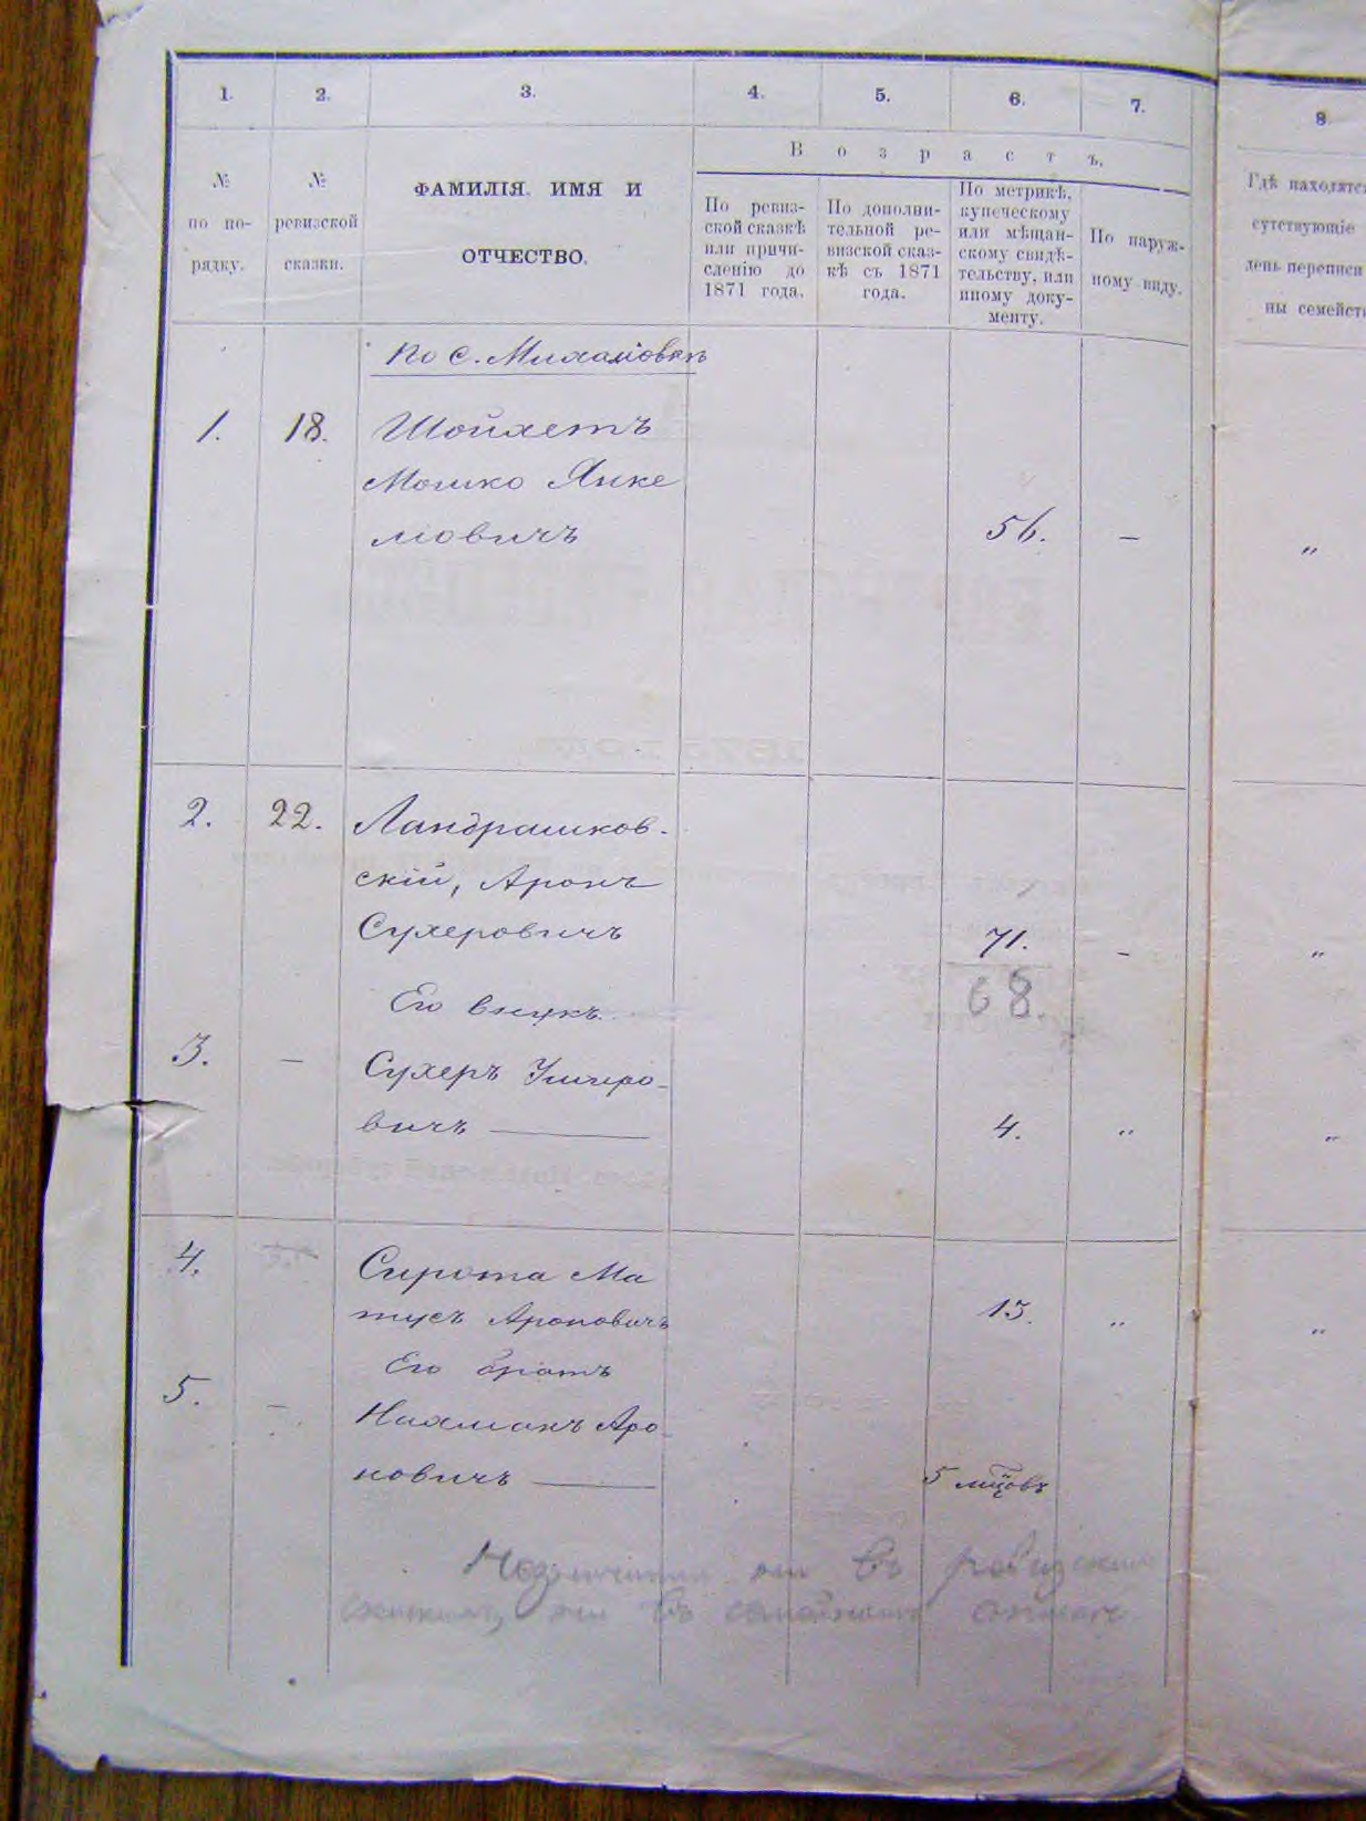 1. 2. 3. 4. 5. 6. 7. 8
Возрастъ.
№
по по-
рядку.
№
ревизской
сказки.
ФАМИЛІЯ, ИМЯ И
ОТЧЕСТВО.
По ревиз-
ской сказкѣ
или причи-
сленію до
1871 года.
По дополни-
тельной ре-
визской сказ-
кѣ съ 1871
года.
По метрикѣ,
купеческому
или мѣщан-
скому свидѣ-
тельству, или
иному доку-
менту.
По наруж-
ному виду.
Гдѣ находятс
сутствующіе
день переписи
ны семейст
По с. Михайловкѣ
1. 18. Шойхетъ
Мошко Янке
ліовичъ 56. – „
2. 22. Ландрашков-
скій, Аронъ
Сухеровичъ 71. – „
68.
Его внукъ
3. – Сухеръ Ушеро-
вичъ — 4. „ „
4. Сирота Ма
тусъ Ароновичъ 13. „ „
Его братъ
5. – Нахманъ Аро-
новичъ — 5 мцовъ
въ
въ